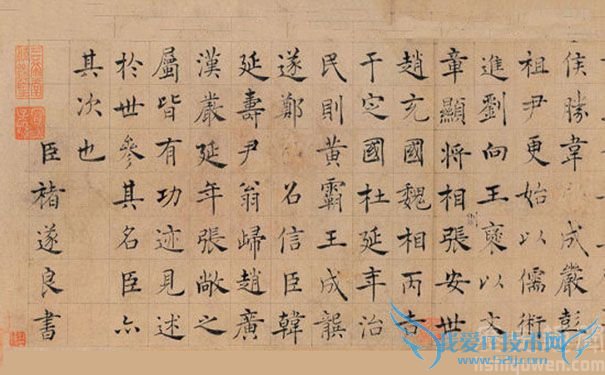 侯勝韋成嚴彭
祖尹更始以儒術
進劉向王褒以文
章顯將相張安世
趙充國魏相丙吉
于定國杜延年治
民則黃霸王成龔
遂鄭召信臣韓
延壽尹翁歸趙廣
漢嚴延年張敞之
屬皆有功迹見述
於世參其名臣亦
其次也
臣褚遂良書
我爱IT技术网